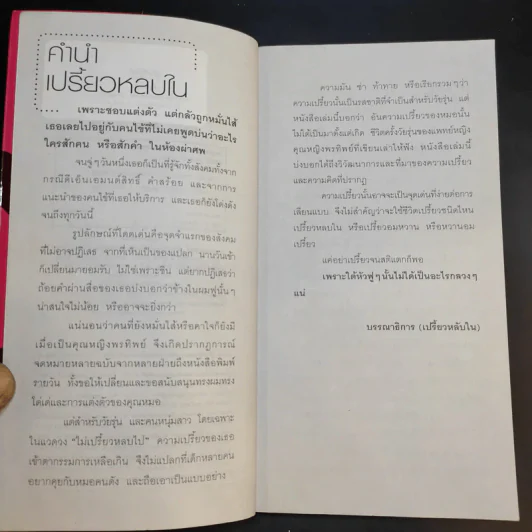 คำนำ
เปรี้ยวหลบใน
เพราะชอบแต่งตัว แต่กลัวถูกหมั่นไส้
เธอเลยไปอยู่กับคนไข้ที่ไม่เคยพูดบ่นว่าอะไร
ใครสักคน หรือสักคำ ในห้องผ่าศพ
จนจู่ๆ วันหนึ่งเธอก็เป็นที่รู้จักทั้งสังคมทั้งจาก
กรณีดีเอ็นเอมนต์สิทธิ์ คำสร้อย และจากการ
แนะนำของคนไข้ที่เธอให้บริการ และเธอก็ยังโด่งดัง
จนถึงทุกวันนี้
รูปลักษณ์ที่โดดเด่นคือจุดจำแรกของสังคม
ที่ไม่อาจปฏิเสธ จากที่เห็นเป็นของแปลก นานวันเข้า
ก็เปลี่ยนมายอมรับ ไม่ใช่เพราะชิน แต่ยากปฏิเสธว่า
ถ้อยคำผ่านสื่อของเธอบ่งบอกว่าข้างในผมฟูนั้นๆ
น่าสนใจไม่น้อย หรืออาจจะยิ่งกว่า
แน่นอนว่าคนที่ยังหมั่นไส้หรือคาใจก็ยังมี
เมื่อเป็นคุณหญิงพรทิพย์ จึงเกิดปรากฏการณ์
จดหมายหลายฉบับจากหลายฝ่ายถึงหนังสือพิมพ์
รายวัน ทั้งขอให้เปลี่ยนและขอสนับสนุนทรงผมทรง
โด่เด่และการแต่งตัวของคุณหมอ
แต่สำหรับวัยรุ่น และคนหนุ่มสาว โดยเฉพาะ
ในแวดวง "ไม่เปรี้ยวหลบไป" ความเปรี้ยวของเธอ
เข้าตากรรมการเหลือเกิน จึงไม่แปลกที่เด็กหลายคน
อยากคุยกับหมอคนดัง และถือเอาเป็นแบบอย่าง
ความมัน ซ่า ท้าทาย หรือเรียกรวมๆ ว่า
ความเปรี้ยวนั้นเป็นรสชาติที่จำเป็นสำหรับวัยรุ่น แต่
หนังสือเล่มนี้บอกว่า อันความเปรี้ยวของเธอนั้น
ไม่ได้เป็นมาตั้งแต่เกิด ชีวิตครั้งวัยรุ่นของแพทย์หญิง
คุณหญิงพรทิพย์ที่เขียนเล่าให้ฟัง หนังสือเล่มนี้
บ่งบอกได้ถึงวิวัฒนาการและที่มาของความเปรี้ยว
และความคิดที่ปรากฏ
ความเปรี้ยวนั้นอาจจะเป็นจุดเด่นที่ง่ายต่อการ
เลียนแบบ จึงไม่สำคัญว่าจะใช้ชีวิตเปรี้ยวชนิดไหน
เปรี้ยวหลบใน หรือเปรี้ยวอมหวาน หรือหวานอม
เปรี้ยว
แค่อย่าเปรี้ยวจนสติแตกก็พอ
เพราะใต้หัวฟูๆ นั้นไม่ได้เป็นอะไรกลวงๆ
แน่
บรรณาธิการ (เปรี้ยวหลับใน)